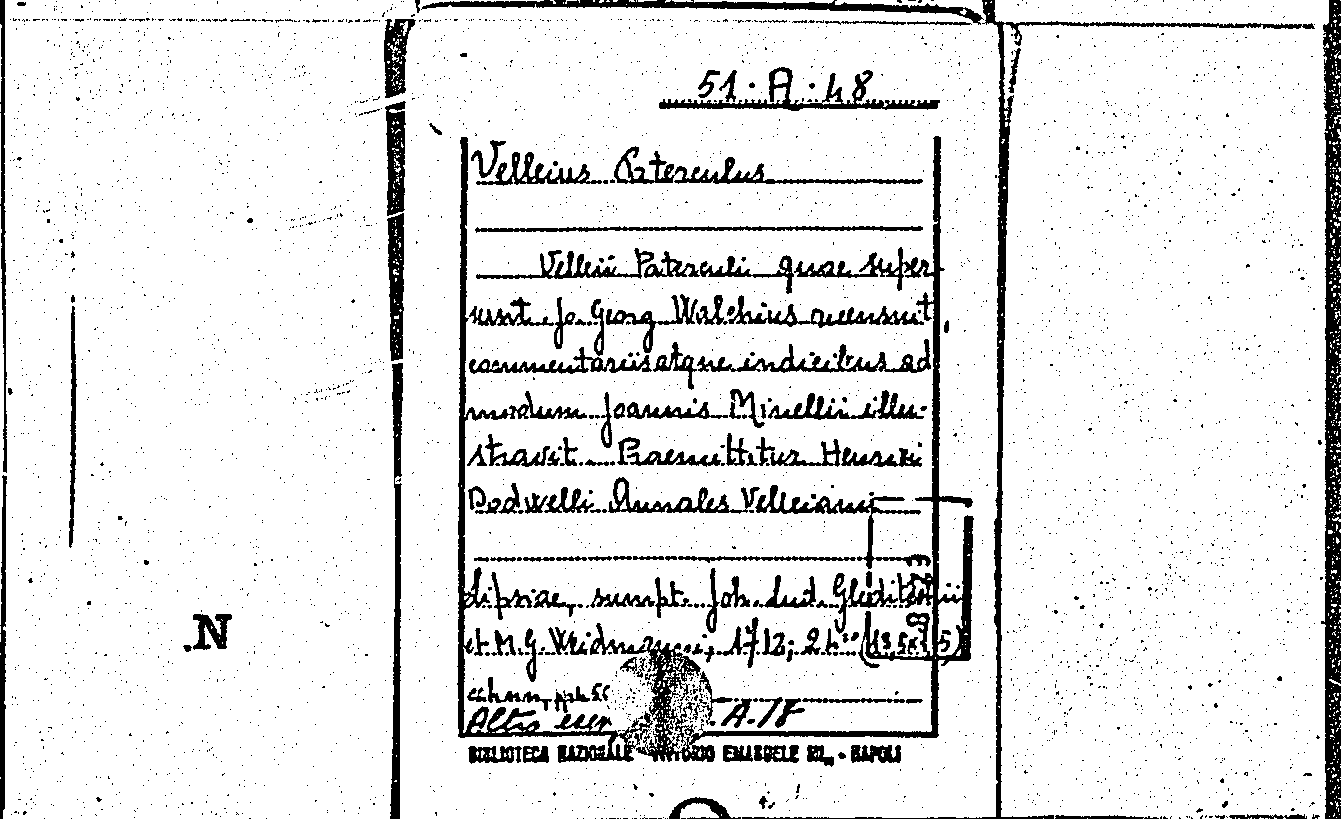 51·A·48
Velleius Paterculus
Velleii Paterculi quae super
sunt. Jo. Georg Walchius recensuit,
commentariis atque indicibus ad
modum Joannis Minellii illu-
stravit. Praemittitur Henrici
Dodwelli Annales Velleiani
Lipsiae, sumpt. Joh. Lud. Gleditschii
et M.G. Weidmanni, 1712; 24°
Altro esem .A.18
BIBLIOTECA NAZIONALE VITTORIO EMANUELE III„ - NAPOLI
.N